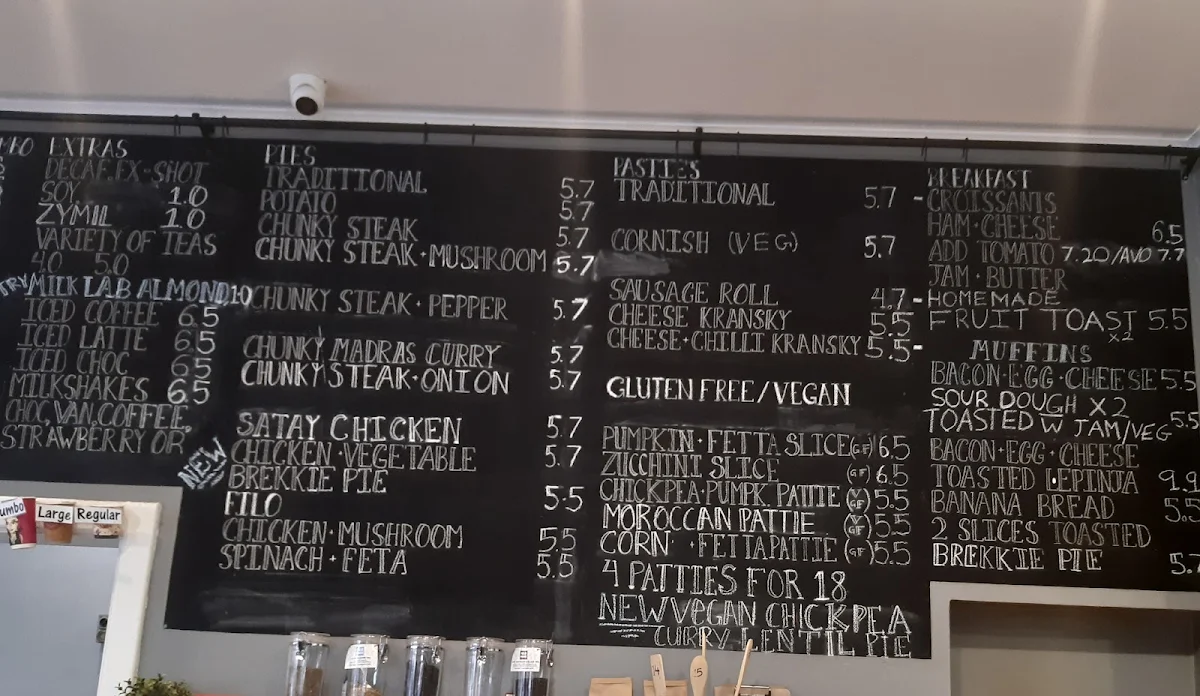 EXTRAS
DECAF.EX-SHOT
SOY 1.0
ZYMIL 1.0
VARIETY OF TEAS
4.0 5.0
MILK LAB ALMOND 10
ICED COFFEE 6.5
ICED LATTE 6.5
ICED CHOC 6.5
MILKSHAKES 6.5
CHOC, VAN, COFFEE,
STRAWBERRY OR
PIES
TRADITIONAL 5.7
POTATO 5.7
CHUNKY STEAK 5.7
CHUNKY STEAK·MUSHROOM 5.7
CHUNKY STEAK·PEPPER 5.7
CHUNKY MADRAS CURRY 5.7
CHUNKY STEAK·ONION 5.7
SATAY CHICKEN 5.7
NEW CHICKEN·VEGETABLE 5.7
BREKKIE PIE
FILO 5.5
CHICKEN·MUSHROOM 5.5
SPINACH + FETA 5.5
PASTIES
TRADITIONAL 5.7
CORNISH (VEG) 5.7
SAUSAGE ROLL 4.7
CHEESE KRANSKY 5.5
CHEESE·CHILLI KRANSKY 5.5
GLUTEN FREE/VEGAN
PUMPKIN·FETTA SLICE (GF) 6.5
ZUCCHINI SLICE (GF) 6.5
CHICKPEA·PUMPK PATTIE (V GF) 5.5
MOROCCAN PATTIE (V GF) 5.5
CORN·FETTA PATTIE (GF) 5.5
4 PATTIES FOR 18
NEW VEGAN CHICKPEA
CURRY LENTIL PIE
BREAKFAST
- CROISSANTS
HAM·CHEESE 6.5
ADD TOMATO 7.20/AVO 7.7
JAM·BUTTER
- HOMEMADE
FRUIT TOAST 5.5
x2
- MUFFINS
BACON·EGG·CHEESE 5.5
SOUR DOUGH X2
TOASTED W JAM/VEG 5.5
BACON·EGG·CHEESE
TOASTED LEPINJA 9.9
BANANA BREAD 5.5
2 SLICES TOASTED
BREKKIE PIE 5.7
Large
Regular